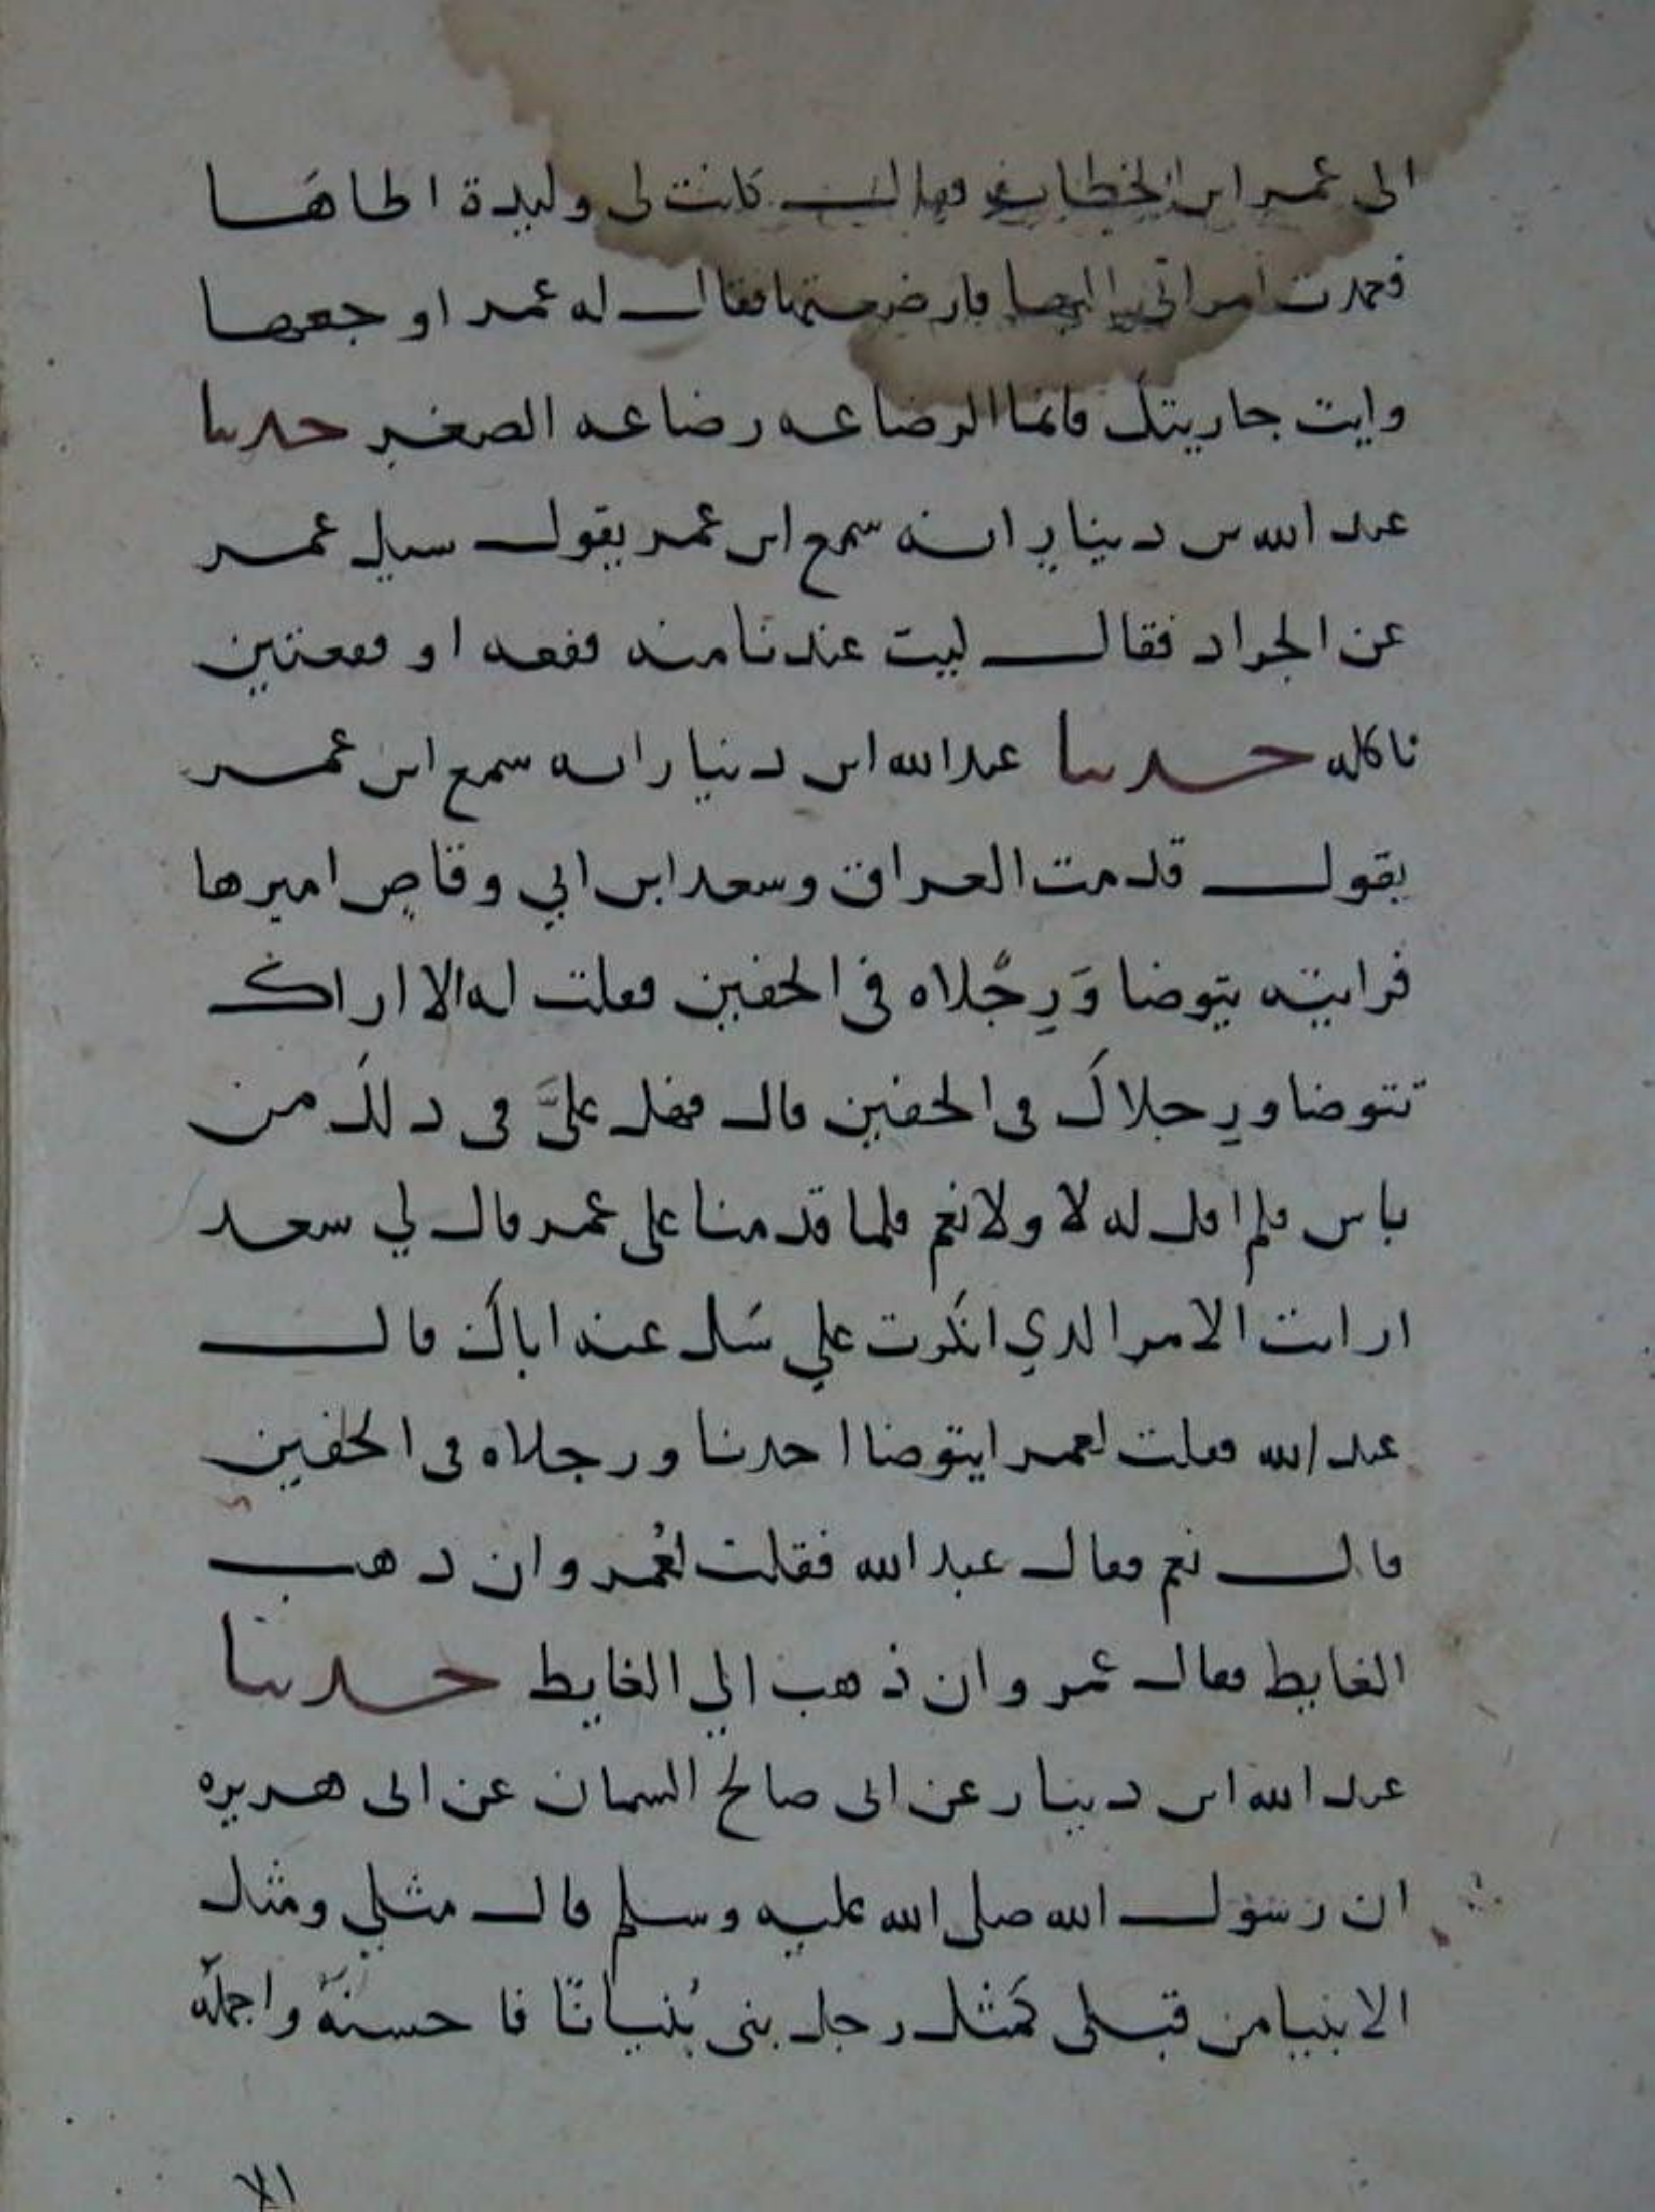 الى عمر ابن الخطاب فقالـــ كانت لى وليدة اطاهَا
فعمدت امراتي اليها فارضعتها فقالـــ له عمر اوجعها
وايت جاريتك فانما الرضاعه رضاعه الصغير حدىىا
عبد الله بن دينار انه سمع ابن عمر يقولـــ سيل عمر
عن الجراد فقالـــ ليت عندنا منه قفعه او قفعتين
ناكله حدىىا عبد الله ابن دينار انه سمع ابن عمر
يقولـــ قدمت العراق وسعد ابن ابي وقاص اميرها
فرايته يتوضا وَرِجُلاه في الخفين فقلت له الا اراك
تتوضا ورِجلاكَ فى الخفين قال فهل علىَّ فى ذلكَ من
باس فلم اقل له لا ولا نعم فلما قدمنا على عمر قال لي سعد
ارايت الامر الذي انكَرت علي سَل عنه اباكَ قالـــ
عبد الله فقلت لعمر ايتوضا احدنا ورجلاه فى الخفين
قالـــ نعم فقال عبد الله فقلت لعُمر وان ذهب
الغايط فقال عمر وان ذهب الي الغايط حدىىا
عبد الله ابن دينار عن ابى صالح السمان عن ابى هريره
ان رسولـــ الله صلى الله عليه وسلم قال مثلي ومثل
الانبيا من قبلى كمَثل رجل بنى بُنيانًا فاحسنهُ واجملَه
الا